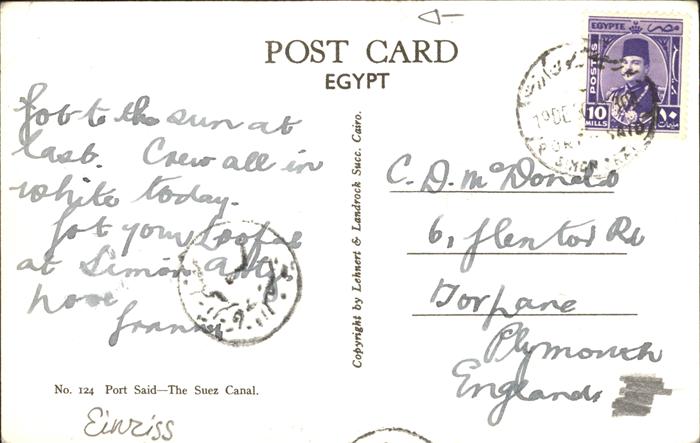 POST CARD
EGYPT
EGYPTE مصر
POSTES
10 MILLS ١٠ مليمات
19 DE
PORT SAID
Got to the sun at
last. Crew all in
white today.
Got your
at Simon Artz
here
Granny
C. D. McDonald
6, Glentor Rd
Torpane
Plymouth
England
Copyright by Lehnert & Landrock Succ. Cairo.
No. 124 Port Said—The Suez Canal.
Einriss